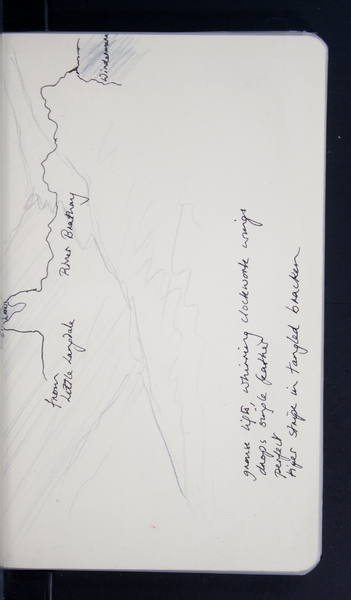 Windermere
River Brathay
From
Little Langdale
grouse lifts, whirring clockwork wings
drops single feather
perfect
tiger stripe in tangled bracken